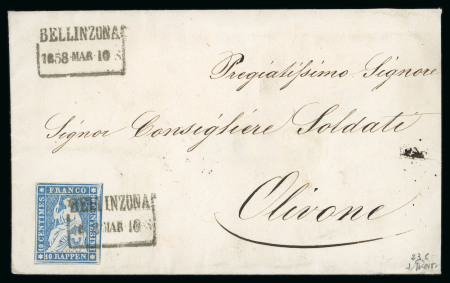 BELLINZONA
1858·MAR·10
Pregiatissimo Signore
Signor Consigliére Soldati
Olivone
FRANCO
10 CENTIMES
10 RAPPEN
BELLINZONA
MAR 10
23C